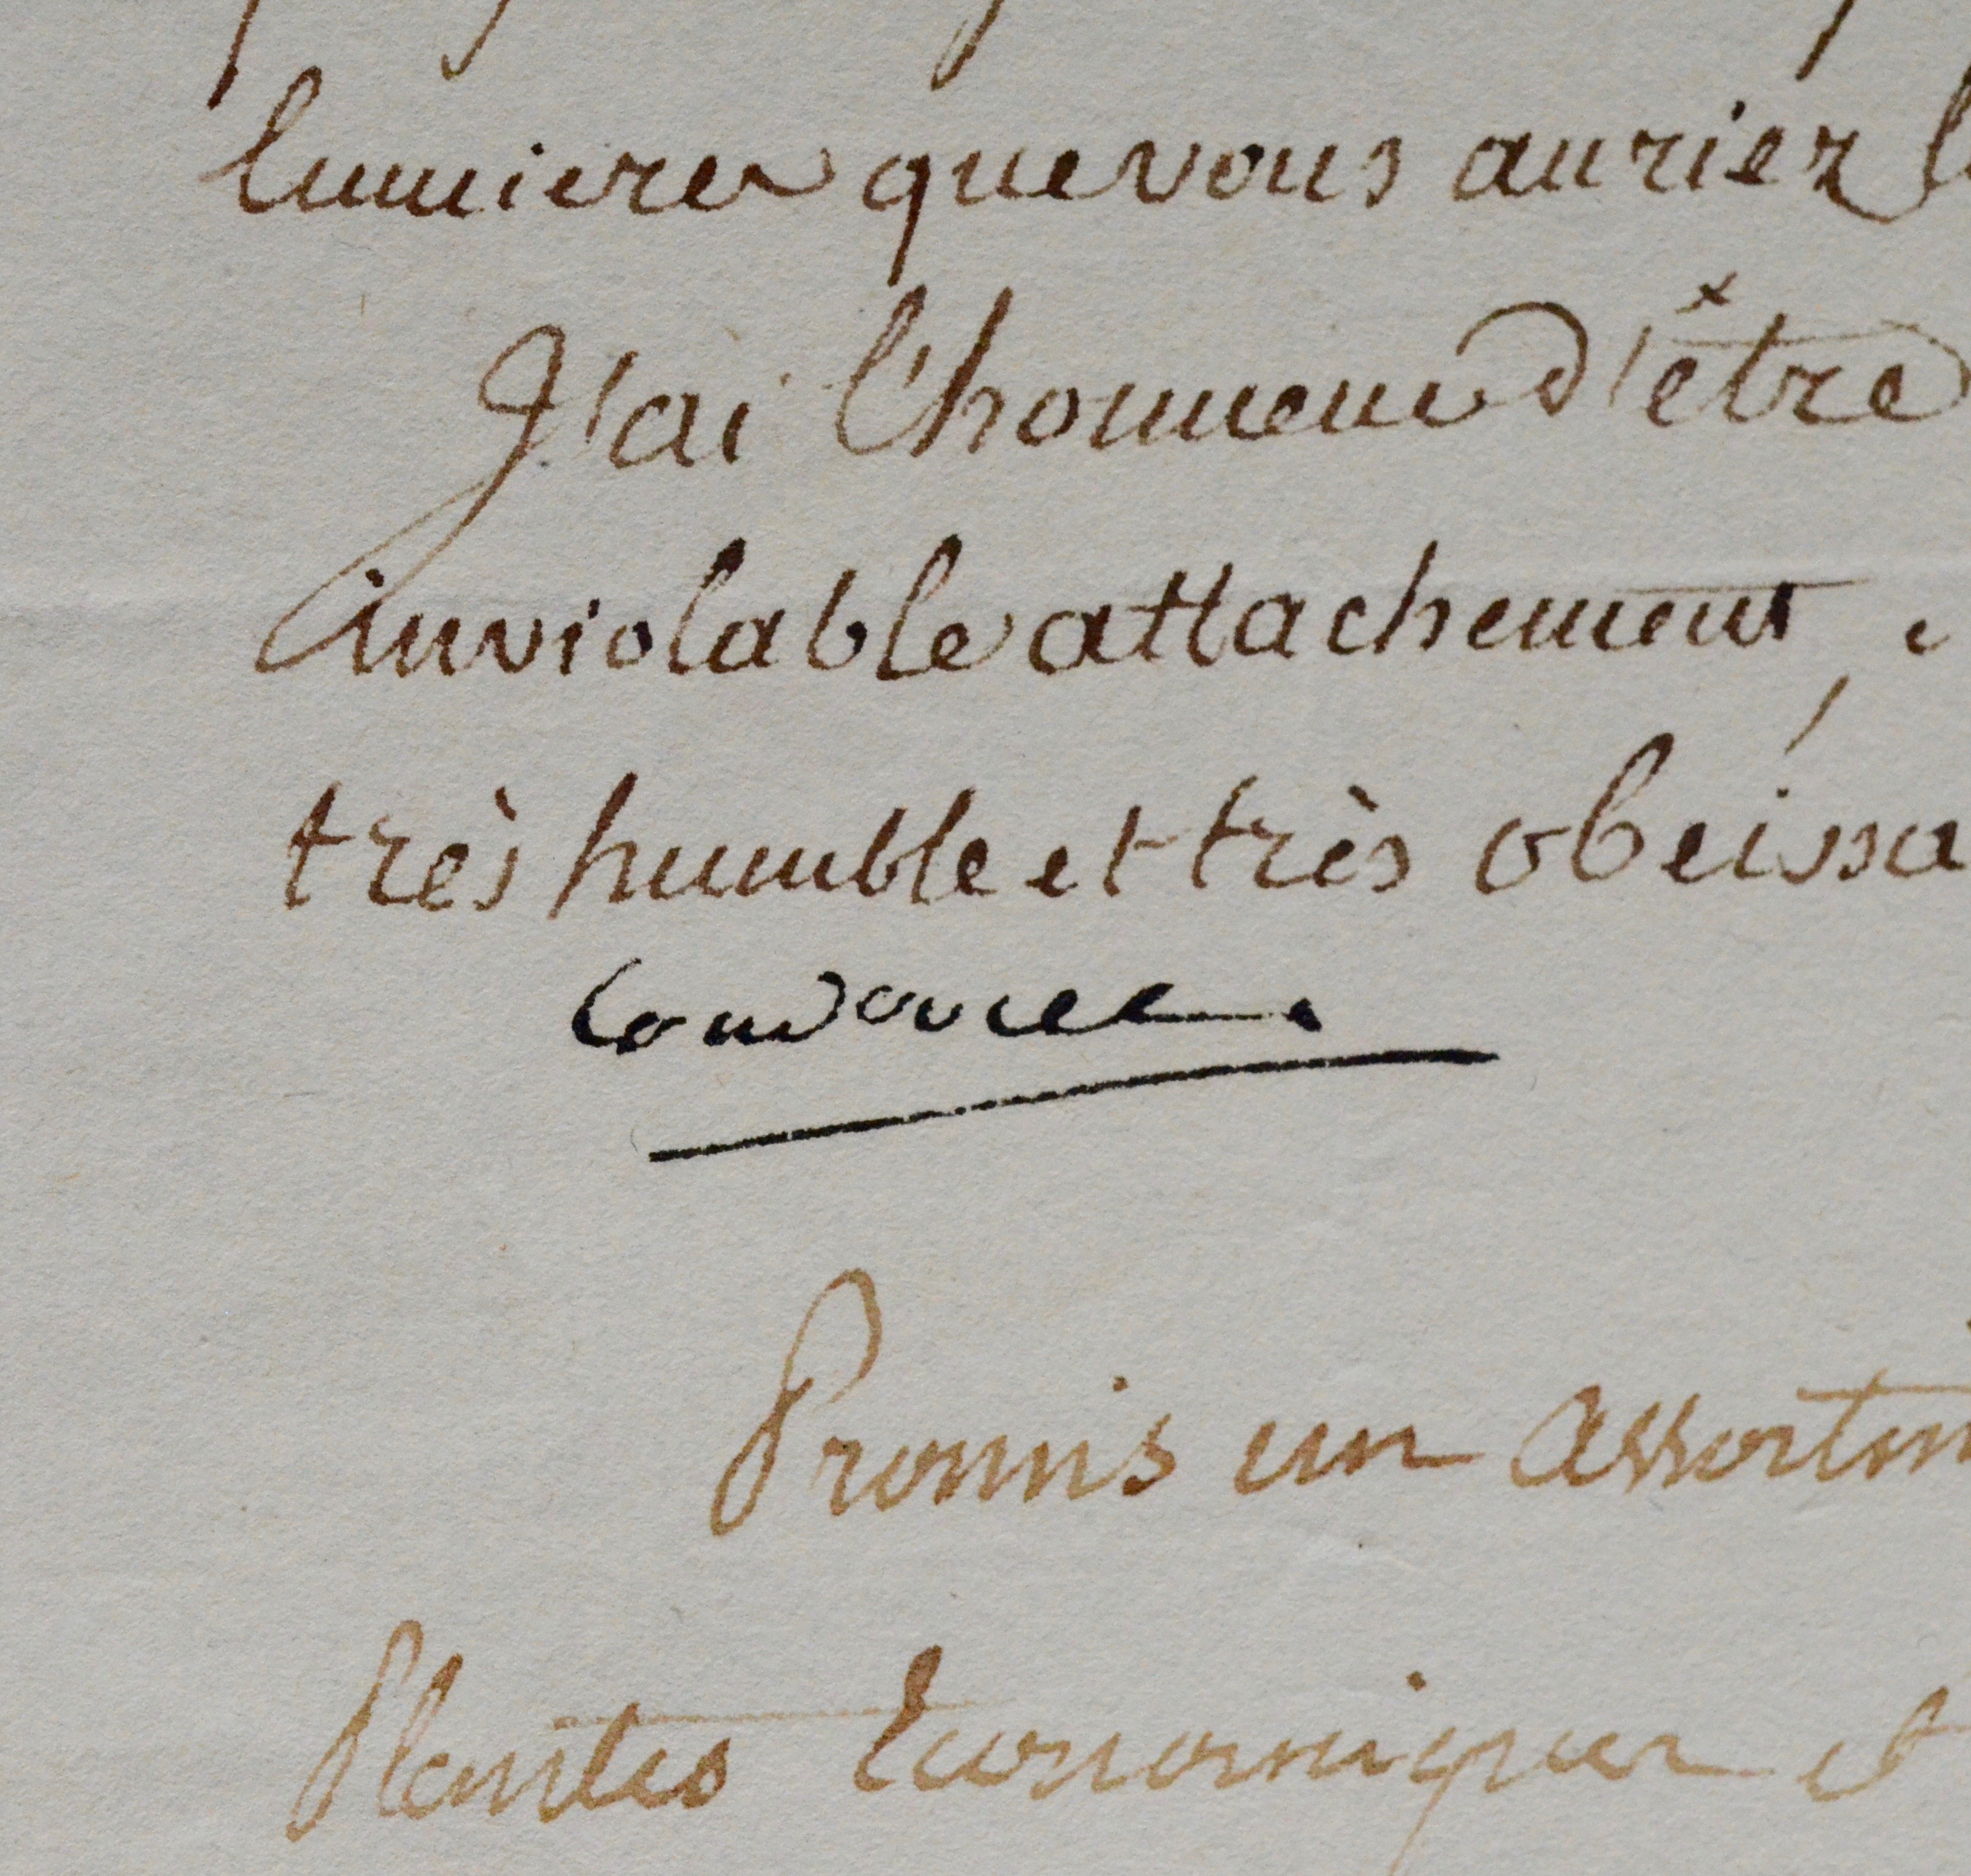 lumieres que vous auriez
J'ai l'honneur d'être
inviolable attachement,
très humble et très obéissa
Condorcet.
Promis un assortim
Plantes Economiques et